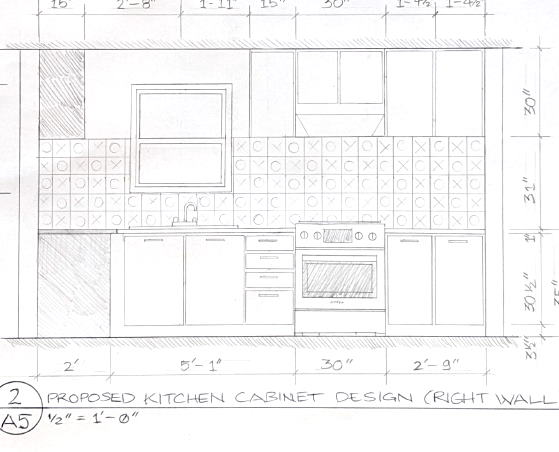 15" 2'-8" 1'-11" 15" 30" 1'-4½" 1'-4½"
30"
31"
1"
30½"
35"
3½"
2' 5'-1" 30" 2'-9"
2 PROPOSED KITCHEN CABINET DESIGN (RIGHT WALL
A5 ½" = 1'-0"